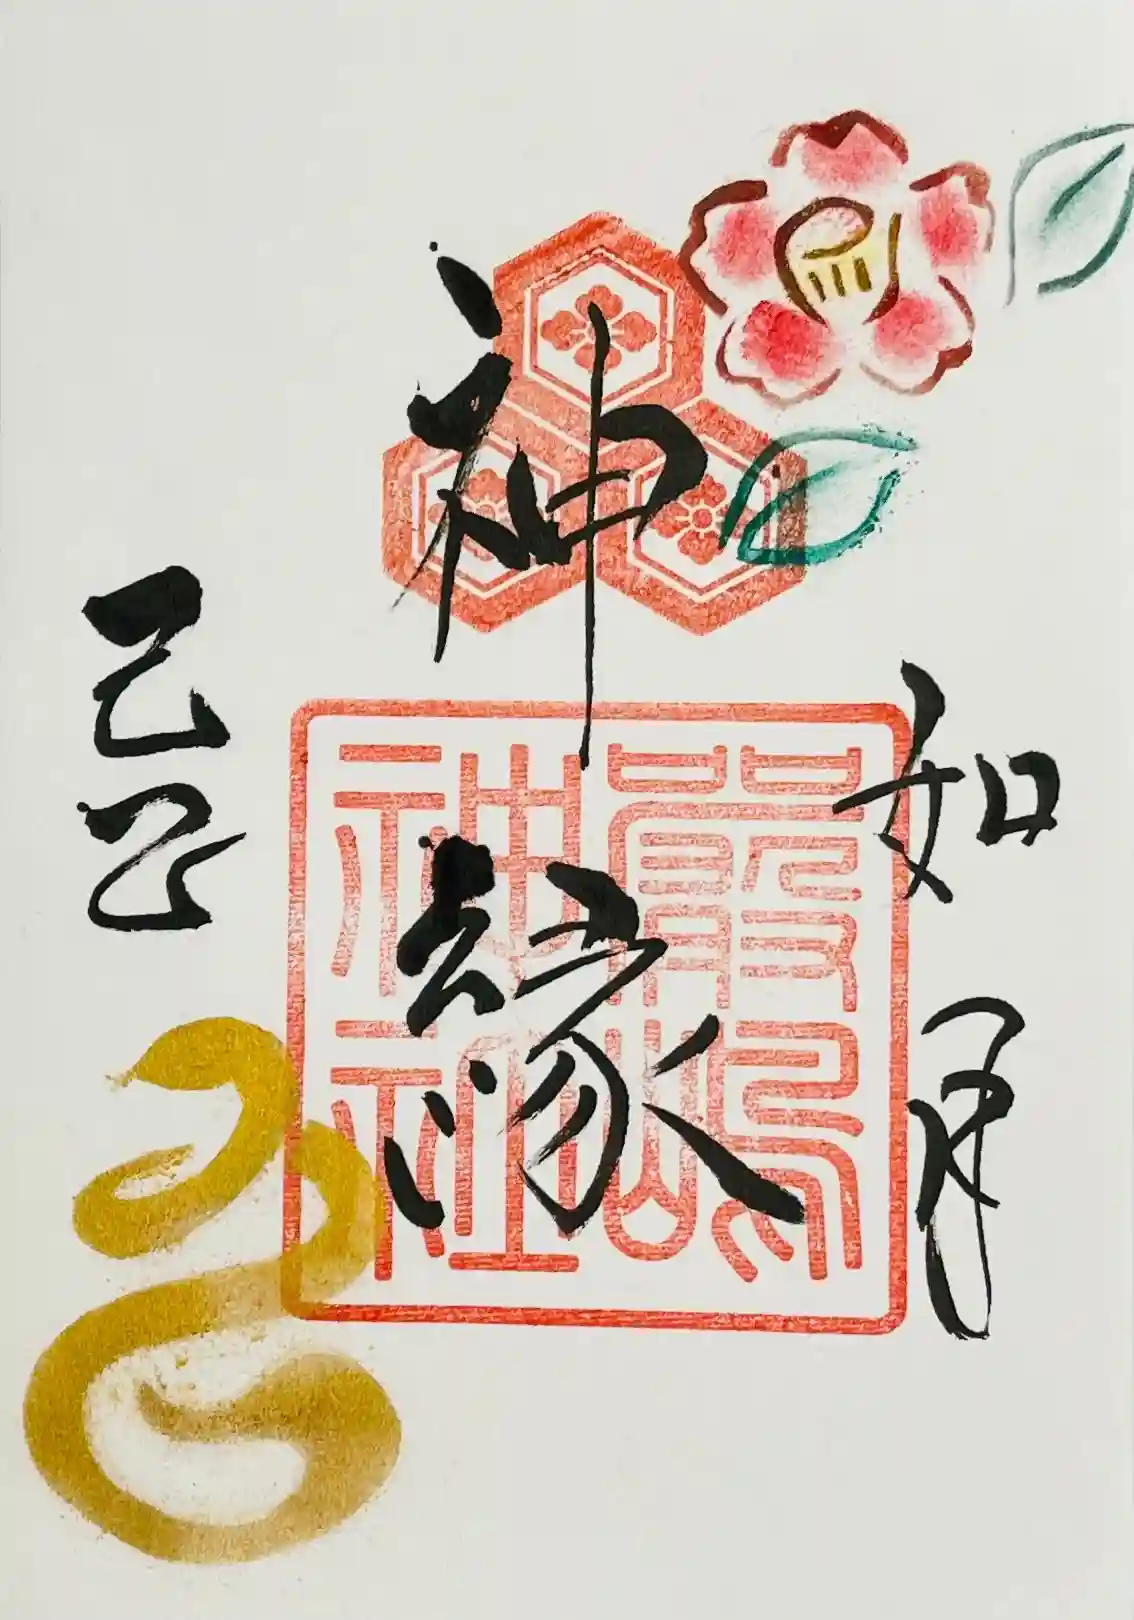 如月
神縁
嚴嶋
神社
己巳